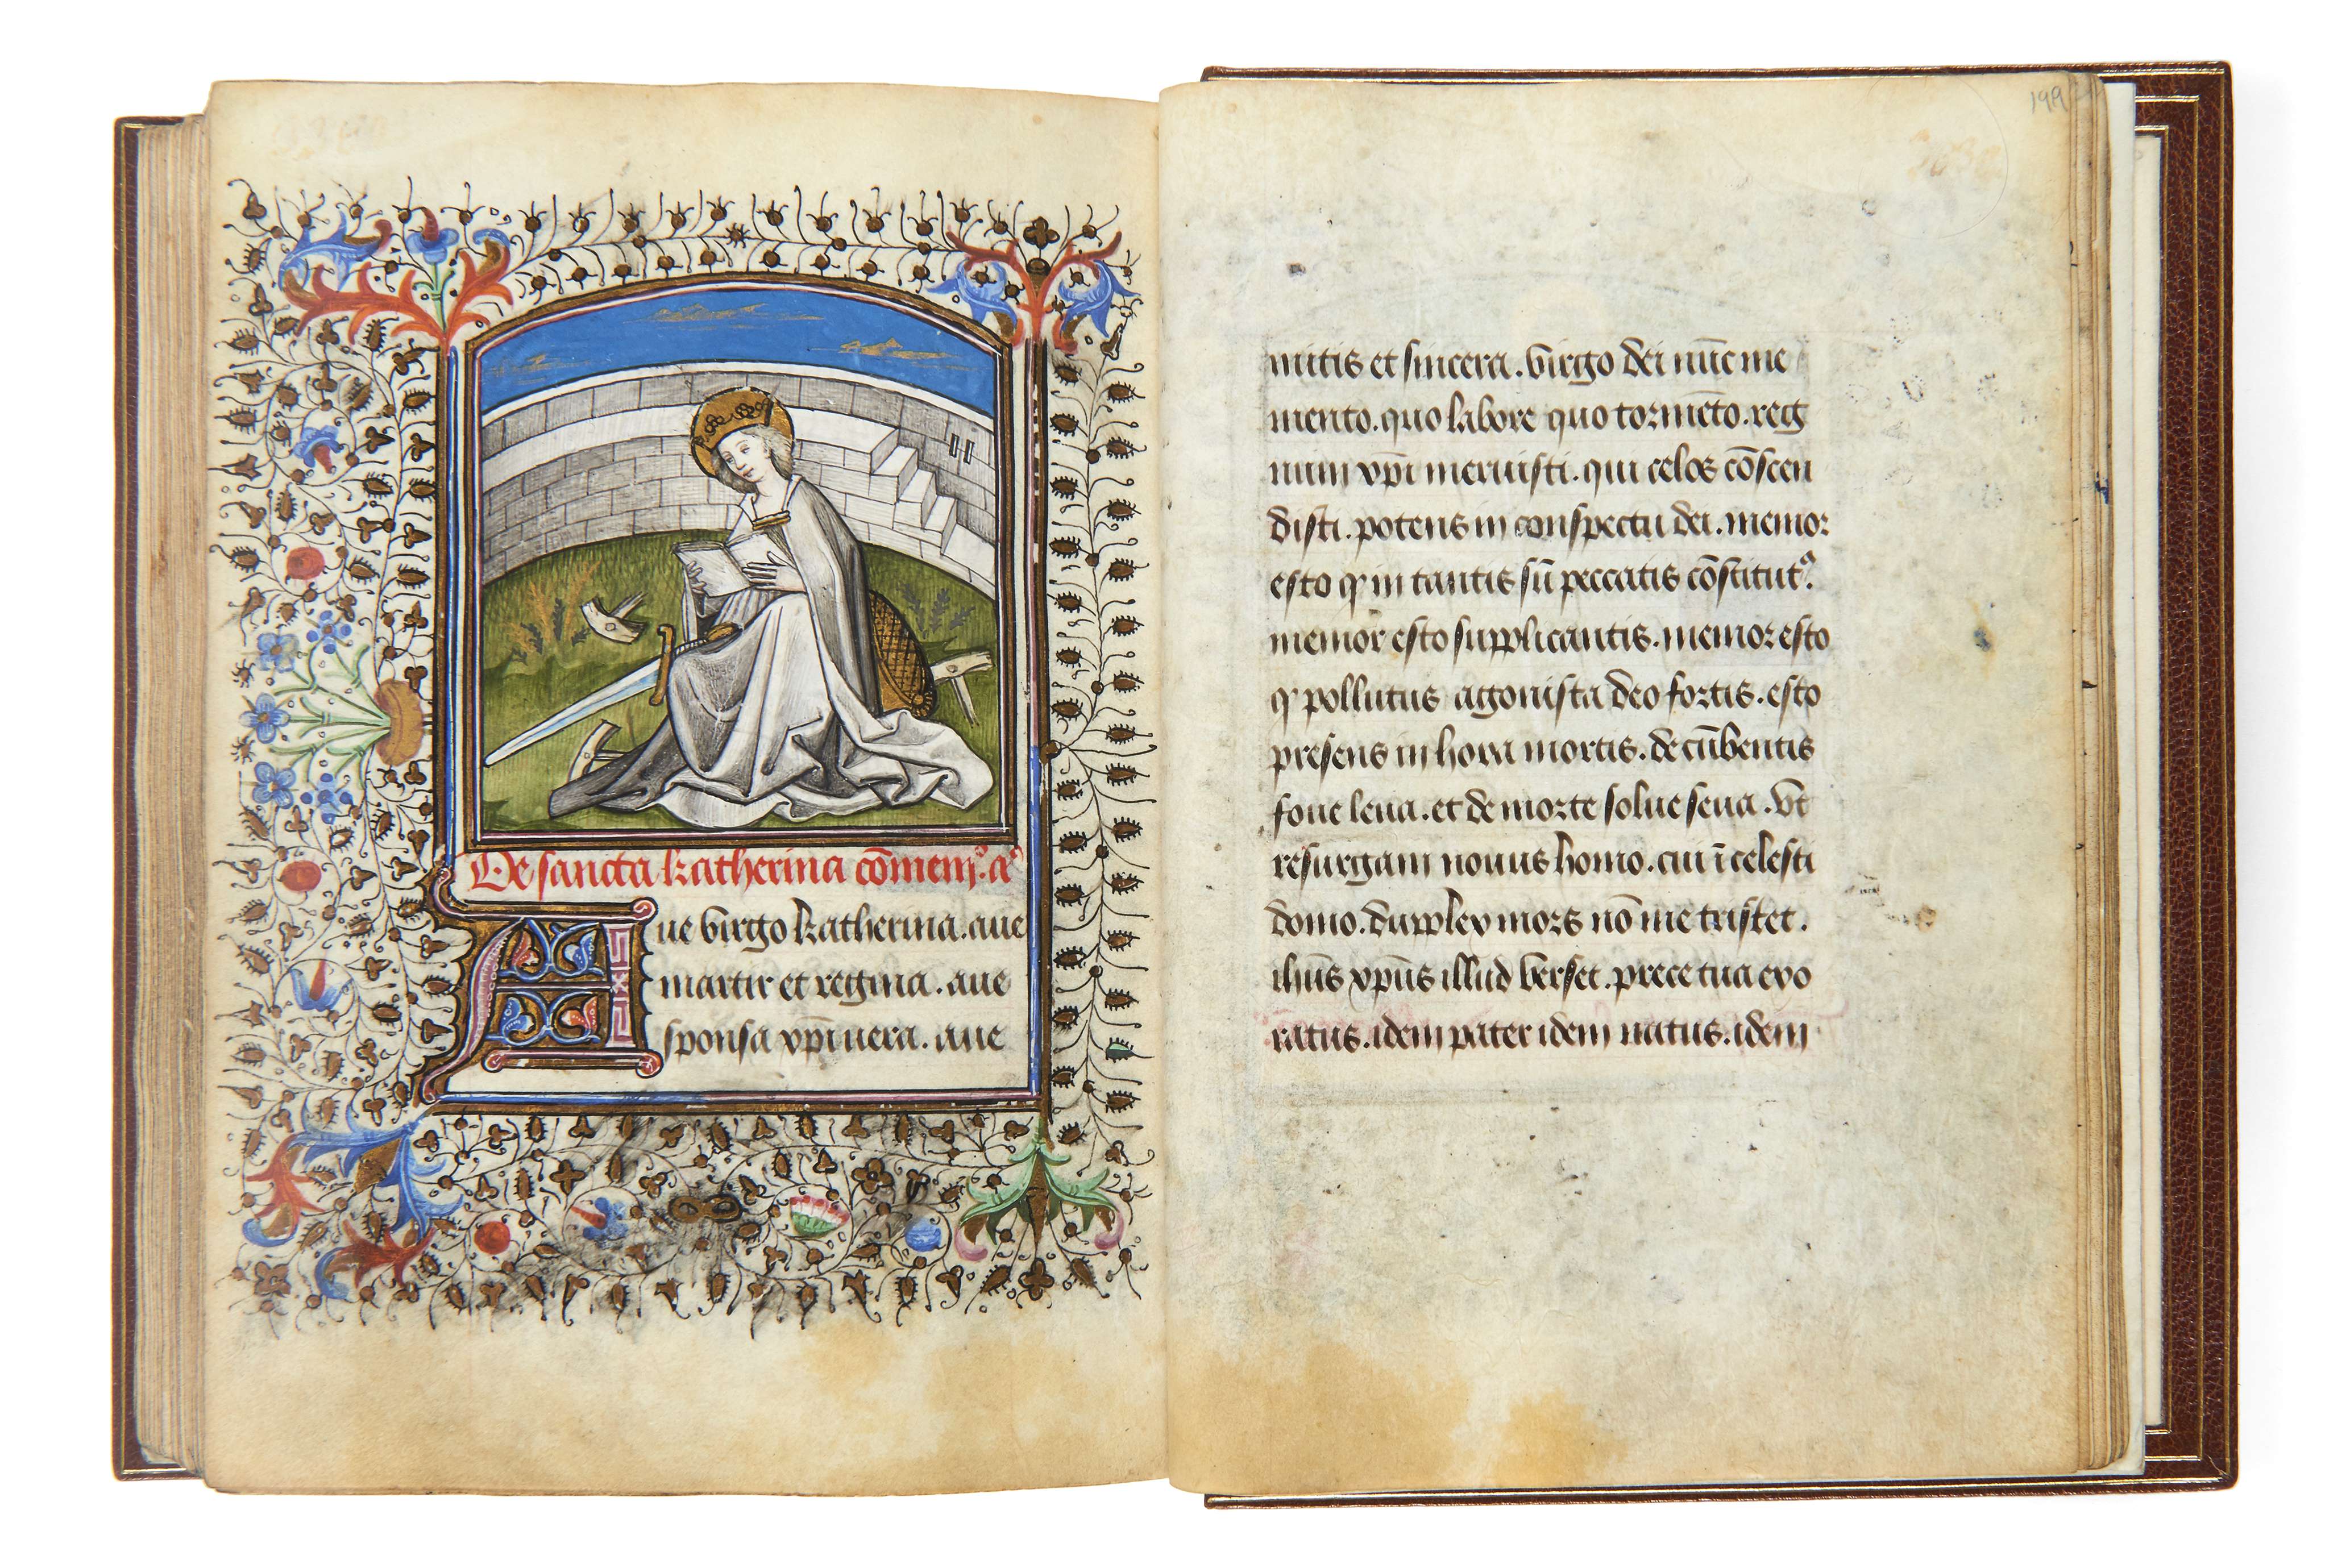 De sancta katherina cōmem̄.ꝰ aͣ
Aue virgo katherina. aue
martir et regina. aue
sponsa xp̄i uera. aue
199
mitis et sincera. virgo dei nūc me
mento. quo labore quo tormēto. reg
num xp̄i meruisti. qui celos cōscen
disti. potens in conspectu dei. memor
esto qͥ in tantis sū peccatis cōstitutꝰ.
memor esto supplicantis. memor esto
qͥ pollutus agonista deo fortis. esto
presens in hora mortis. decūbentis
foue leua. et de morte solue seua. vt
resurgam nouus homo. cui ī celesti
domo. duplex mors nō me tristet.
ihūs xp̄us illud verset. prece tua exo
ratus. idem pater idem natus. idem